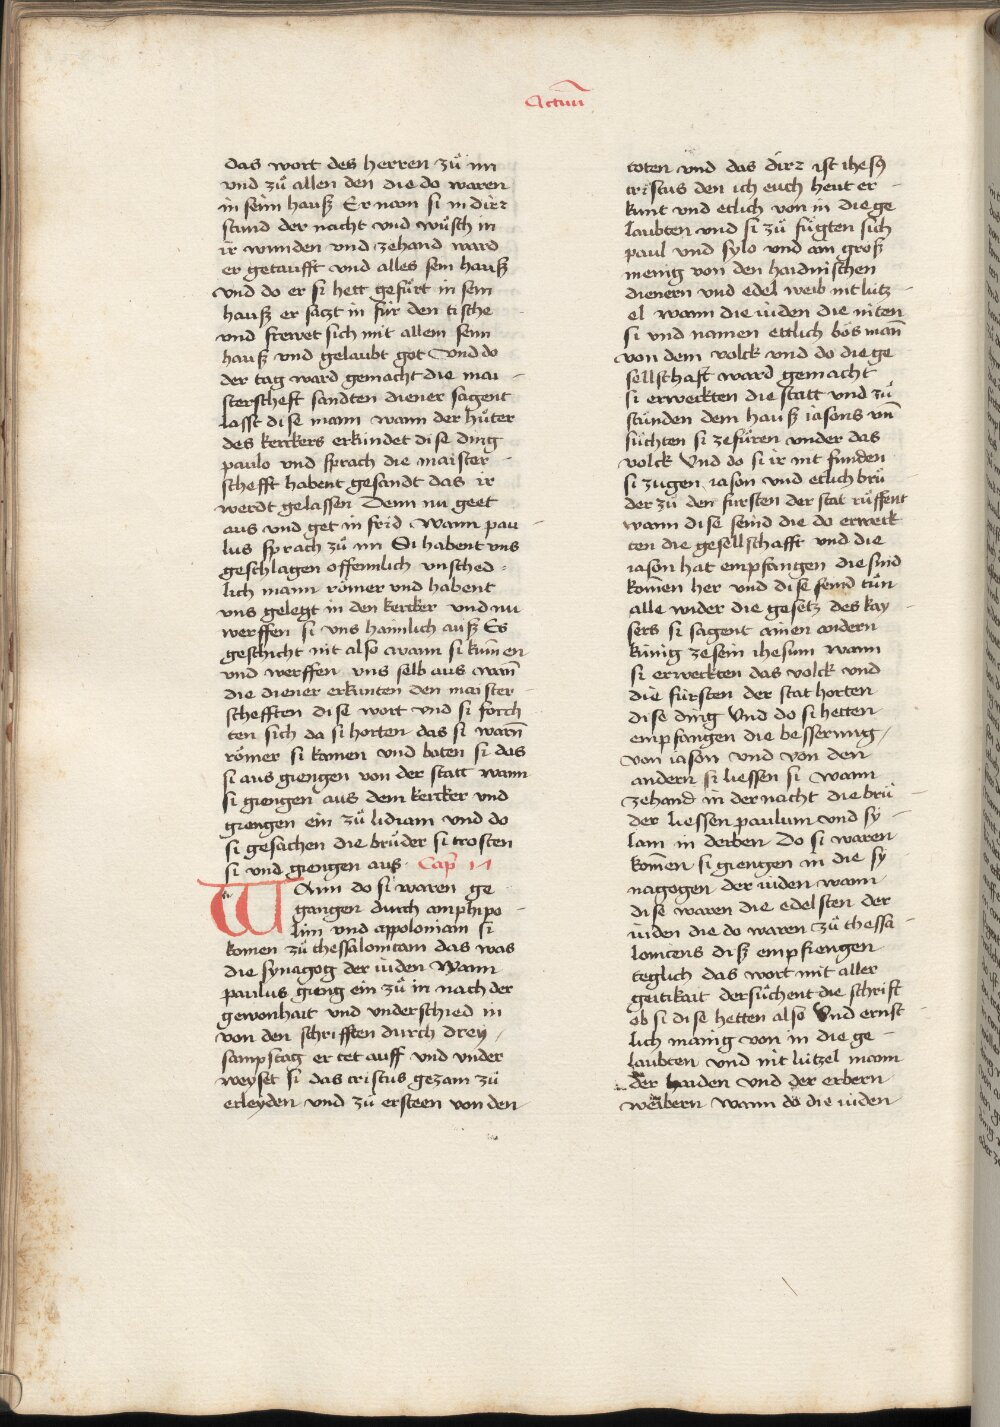 Actuū
das wort des herren zů im
vnd zů allen den die do waren
in seim hauß Er nam si in dirr
stund der nacht vnd wůsch in
ir wunden vnd zehand ward
er getaufft vnd alles sein hauß
vnd do er si hett gefůrt in sein
hauß er satzt in für den tische
vnd frewet sich mit allem seim
hauß vnd gelaubt got Vnd do
der tag ward gemacht die mai-
sterscheft sandten diener sagent
lasst dise mann wann der hůter
des kerckers erkündet dise ding
paulo vnd sprach die maister-
schefft habent gesandt das ir
werdt gelassen Denn nu geet
aus vnd get in frid Wann pau-
lus sprach zů im Si habent vns
geschlagen offennlich vnsched-
lich mann römer vnd habent
vns gelegt in den kercker vnd nu
werffen si vns haimlich auß Es
geschicht nit also wann si kumen
vnd werffen vns selb aus wañ
die diener erkunten den maister-
schefften dise wort vnd si forch
ten sich da si horten das si warn̄
römer si komen vnd baten si das
si aus giengen von der statt wann
si giengen aus dem kercker vnd
giengen ein zů lidiam vnd do
si gesachen die brůder si trosten
si vnd giengen aus Cap̄ 17
Wann do si waren ge
gangen durch amphipo-
lim vnd appoloniam si
komen zů thessalonicam das was
die synagog der iuden Wann
paulus gieng ein zů in nach der
gewonhait vnd vnderschied in
von den schrifften durch drey
sampstag er tet auff vnd vnder
weyset si das cristus gezam zů
erleyden vnd zů ersteen von den
toten vnd das dirr ist ihesꝰ
cristus den ich euch heut er-
kunt vnd etlich von in die ge
laubten vnd si zů fůgten sich
paul vnd sylo vnd ain groß
menig von den haidnischen
dienern vnd edel weib nit lütz-
el wann die iuden die niten
si vnd namen ettlich bös mañ
von dem volck vnd do die ge
sellschaft ward gemacht
si erweckten die statt vnd zů
stůnden dem hauß iasons vñ
sůchten si zefůren vnder das
volck Vnd do si ir nit funden
si zugen iason vnd etlich brů
der zů den fürsten der stat růffent
wann dise seind die do erweck
ten die gesellschafft vnd die
iason hat empfangen die sind
kom̄en her vnd dise seind tůn
alle wider die gesetz des kay-
sers si sagent ainen andern
künig zesein ihesum wann
si erweckten das volck vnd
die fürsten der stat horten
dise ding Vnd do si hetten
empfangen die besserung
von iason vnd von den
andern si liessen si Wann
zehand in der nacht die brü-
der liessen paulum vnd sy-
lam in derben Do si waren
kom̄en si giengen in die sy
nagogen der iuden wann
dise waren die edelsten der
iuden die do waren zů thessa-
lonicens diß empfiengen
teglich das wort mit aller
geitikait dersůchent die schrift
ob si dise hetten also Vnd ernst-
lich manig von in die ge-
laubten vnd nit lützel mann
der haiden vnd der erbern
weibern Wann do die iuden